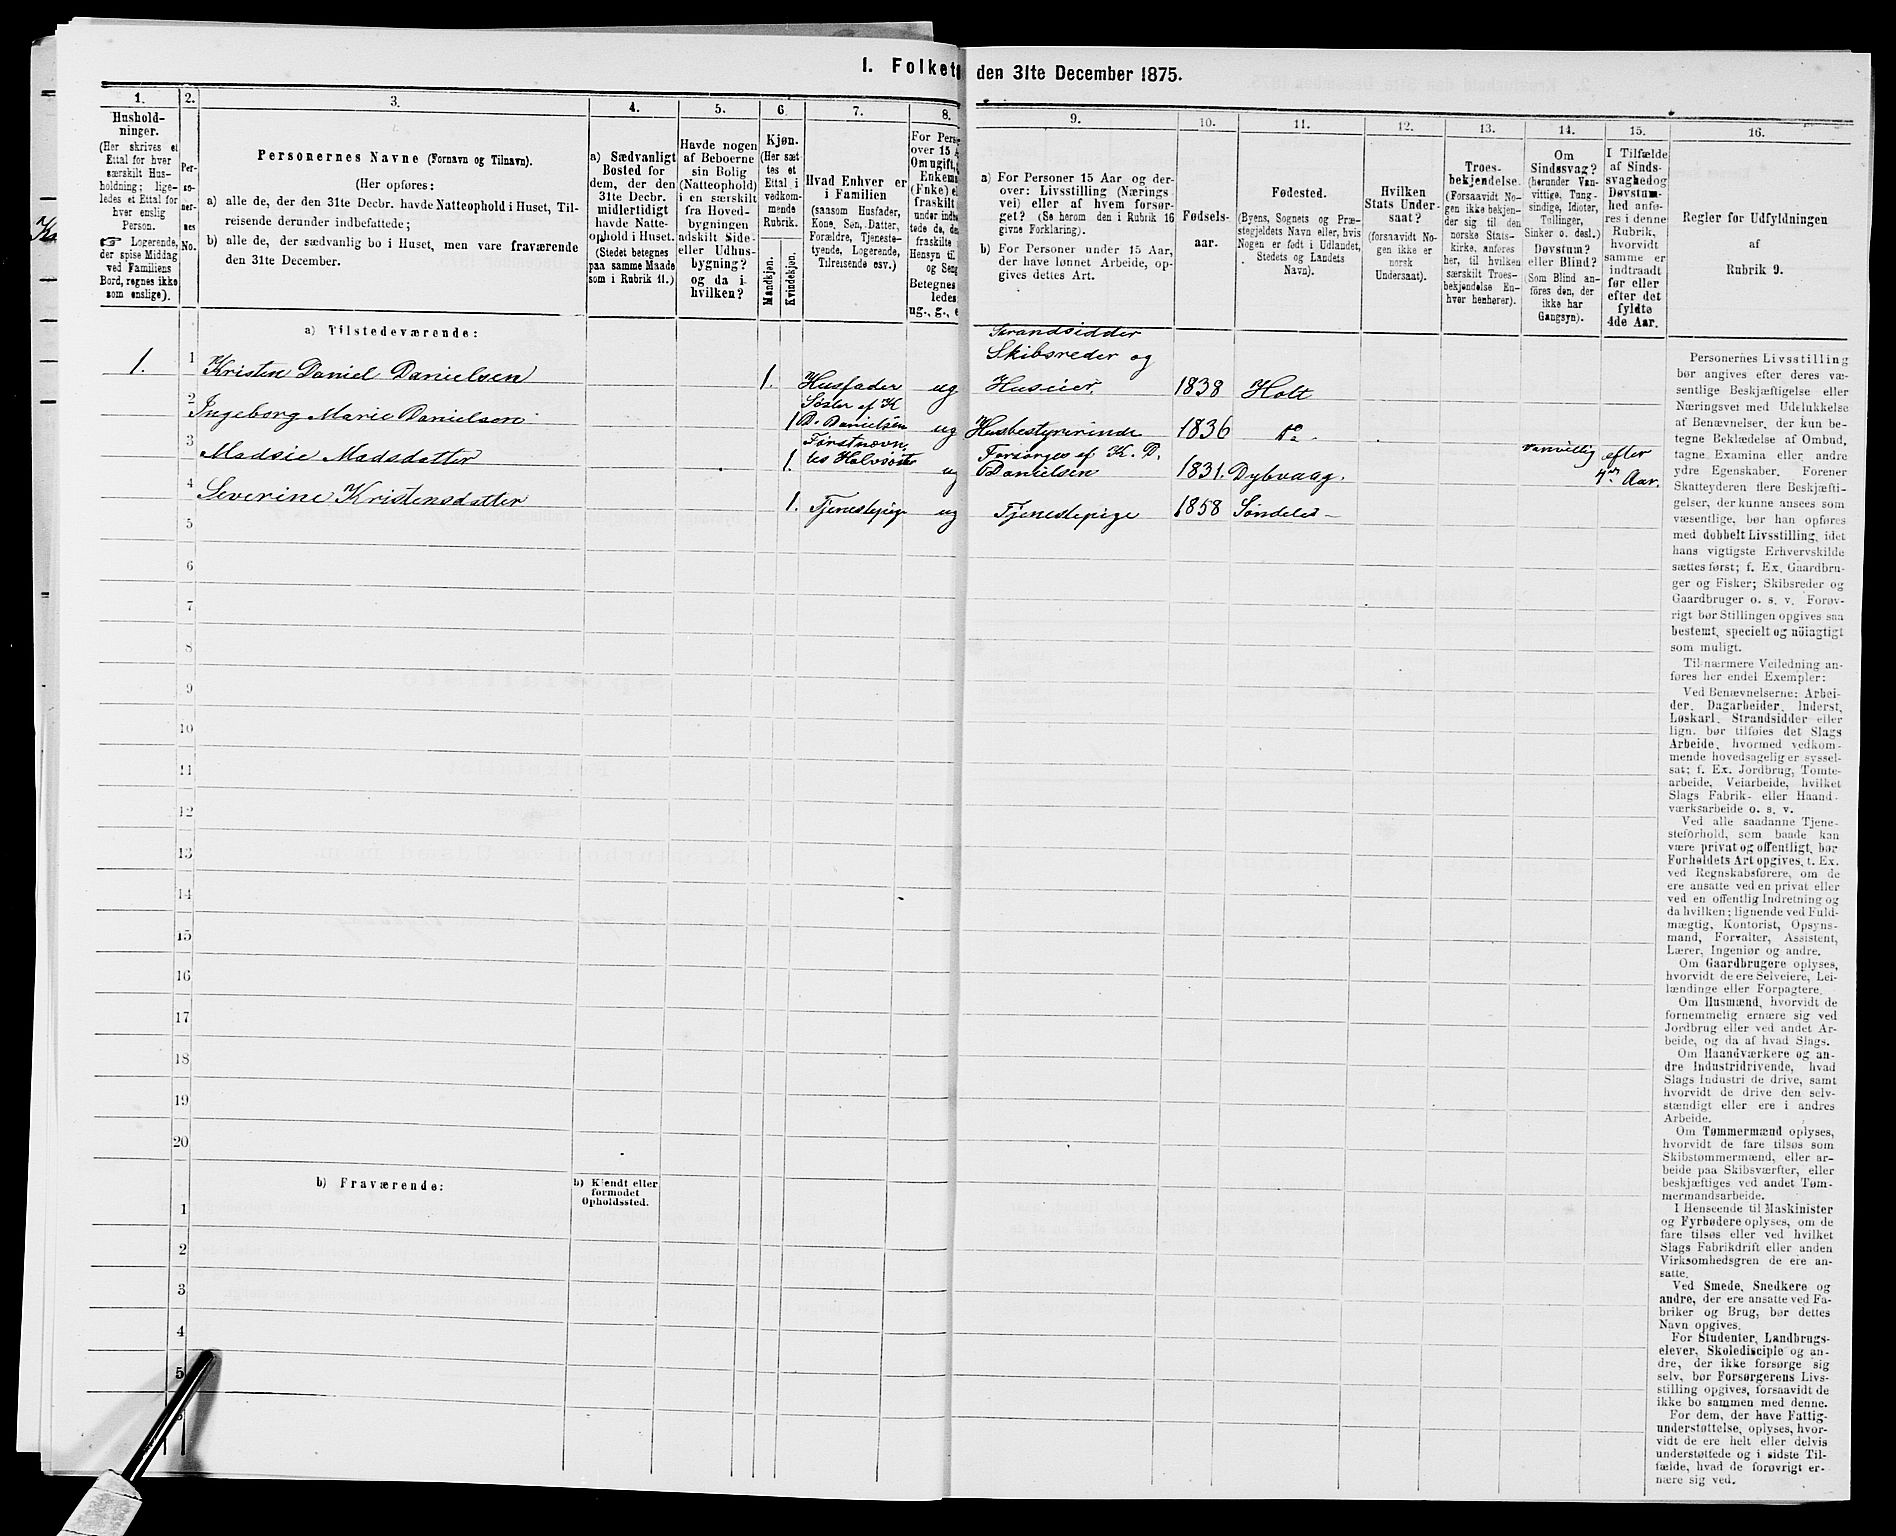 I. Folket
den 31te December 1875.
1.
2.
3.
4.
5.
6
7.
8.
9.
10.
11.
12.
13.
14.
15.
16.
Hushold-
ninger.
(Her skrives et
Ettal for hver
særskilt Hus-
holdning; lige-
ledes et Ettal for
hver enslig
Person.
☞ Logerende,
der spise Middag
ved Familiens
Bord, regnes ikke
som enslige).
Per-
so-
ner-
nes
No.
Personernes Navne (Fornavn og Tilnavn).
(Her opføres:
a) alle de, der den 31te Decbr. havde Natteophold i Huset, Til-
reisende derunder indbefattede;
b) alle de, der sædvanlig bo i Huset, men vare fraværende
den 31te December.
a) Sædvanligt
Bosted for
dem, der den
31te Decbr.
midlertidigt
havde Natte-
ophold i Huset.
(Stedet betegnes
paa samme Maade
som i Rubrik 11.)
Havde nogen
af Beboerne
sin Bolig
(Natteophold)
i en særskilt
fra Hoved-
bygningen
adskilt Side-
eller Udhus-
bygning?
og da i
hvilken?
Kjøn.
(Her sæt-
tes et
Ettal i
vedkom-
mende
Rubrik.
Mandkjøn.
Kvindekjøn.
Hvad Enhver er
i Familien
(saasom Husfader,
Kone, Søn, Datter,
Forældre, Tjeneste-
tyende, Logerende,
Tilreisende osv.)
For Perso
over 15 A
Om ugift,
Enkema
(Enke) e
fraskilt
under indb
tede de, de
fraskilte
Hensyn til
og Seng
Betegnes
ledes
ug., g., e
a) For Personer 15 Aar og der-
over: Livsstilling (Nærings
vei) eller af hvem forsør-
get? (Se herom den i Rubrik 16
givne Forklaring).
b) For Personer under 15 Aar,
der have lønnet Arbeide, op-
gives dettes Art.
Fødsels-
aar.
Fødested.
(Byens, Sognets og Præ-
stegjeldets Navn eller, hvis
Nogen er født i Udlandet,
Stedets og Landets
Navn).
Hvilken
Stats Under-
saat?
(forsaavidt No-
gen ikke er
norsk
Undersaat).
Troes-
bekjendelse.
(Forsaavidt No-
gen ikke bekjen-
der sig til den
norske Stats-
kirke, anføres
her, til hvilken
særskilt Troes-
bekjendelse En-
hver henhører).
Om
Sindssvag?
(herunder Van-
vittige, Tung-
sindige, Idioter,
Tullinger,
Sinker o. desl.)
Døvstum?
eller Blind?
(Som Blind an-
føres den, der
ikke har
Gangsyn).
I Tilfælde
af Sinds-
svaghed og
Døvstum-
hed anfø-
res i denne
Rubrik,
hvorvidt
samme er
indtraadt
før eller
efter det
fyldte
4de Aar.
Regler for Udfyldningen
af
Rubrik 9.
a) Tilstedeværende:
1. 1 Kristen Daniel Danielsen 1. Husfader ug Strandsidder
Skibsreder og
Huseier, 1838 Holt
2 Ingeborg Marie Danielsen 1 Søster af K
D. Danielsen ug Husbestyrerinde 1836 do.
3 Madsie Madsdatter 1. Førstnævn-
tes Halvsøster ug Forsørges af K. D.
Danielsen 1831. Dybvaag. vanvittig efter
4de Aar.
4 Severine Kristensdatter 1. Tjenestepige ug Tjenestepige 1858 Søndeled
5
6
7
8
9
10
11
12
13
14
15
16
17
18
19
20
b) Fraværende:
b) Kjendt eller
formodet
Opholdssted.
1
2
3
4
5
Personernes Livsstilling
bør angives efter deres væ-
sentlige Beskjæftigelse eller
Næringsvei med Udelukkelse
af Benævnelser, der kun be-
tegne Beklædelse af Ombud,
tagne Examina eller andre
ydre Egenskaber. Forener
Skatteyderen flere Beskjæfti-
gelser, der kunne ansees som
væsentlige, bør han opføres
med dobbelt Livsstilling, idet
hans vigtigste Erhvervskilde
sættes først; f. Ex. Gaardbru-
ger og Fisker; Skibsreder og
Gaardbruger o. s. v. Forøv-
rigt bør Stillingen opgives saa
bestemt, specielt og nöiagtigt
som muligt.
Til nærmere Veiledning an-
føres her endel Exempler:
Ved Benævnelserne: Arbei-
der, Dagarbeider, Inderst,
Løskarl, Strandsidder eller
lign. bør tilføies det Slags
Arbeide, hvormed vedkom-
mende hovedsagelig er syssel-
sat; f. Ex. Jordbrug, Tomte-
arbeide, Veiarbeide, hvilket
Slags Fabrik- eller Haand-
værksarbeide o. s. v.
Ved alle saadanne Tjene-
steforhold, som baade kan
være privat og offentligt, bør
Forholdets Art opgives, f. Ex.
ved Regnskabsførere, om de
ere ansatte ved en privat eller
ved en offentlig Indretning og
da hvilken; lignende ved Fuld-
mægtig, Kontorist, Opsyns-
mand, Forvalter, Assistent,
Lærer, Ingeniør og andre.
Om Gaardbrugere oplyses,
hvorvidt de ere Selveiere, Lei-
lændinge eller Forpagtere.
Om Husmænd, hvorvidt de
fornemmelig ernære sig ved
Jordbrug eller ved andet Ar-
beide, og da af hvad Slags.
Om Haandværkere og an-
dre Industridrivende, hvad
Slags Industri de drive, samt
hvorvidt de drive den selv-
stændigt eller ere i andres
Arbeide.
Om Tømmermænd oplyses,
hvorvidt de fare tilsøs som
Skibstømmermænd, eller ar-
beide paa Skibsværfter, eller
beskjæftiges ved andet Tøm-
mermandsarbeide.
I Henseende til Maskinister
og Fyrbødere oplyses, om de
fare tilsøs eller ved hvilket
Slags Fabrikdrift eller anden
Virksomhedsgren de ere an-
satte.
Ved Smede, Snedkere og
andre, der ere ansatte ved Fa-
briker og Brug, bør dettes
Navn opgives.
For Studenter, Landbrugs-
elever, Skoledisciple og an-
dre, der ikke forsørge sig
selv, bør Forsørgerens Livs-
stilling opgives, forsaavidt de
ikke bo sammen med denne.
For dem, der have Fattig-
understøttelse, oplyses, hvor-
vidt de ere helt eller delvis
understøttede og i sidste Til-
fælde, hvad de forøvrigt er-
nære sig ved.